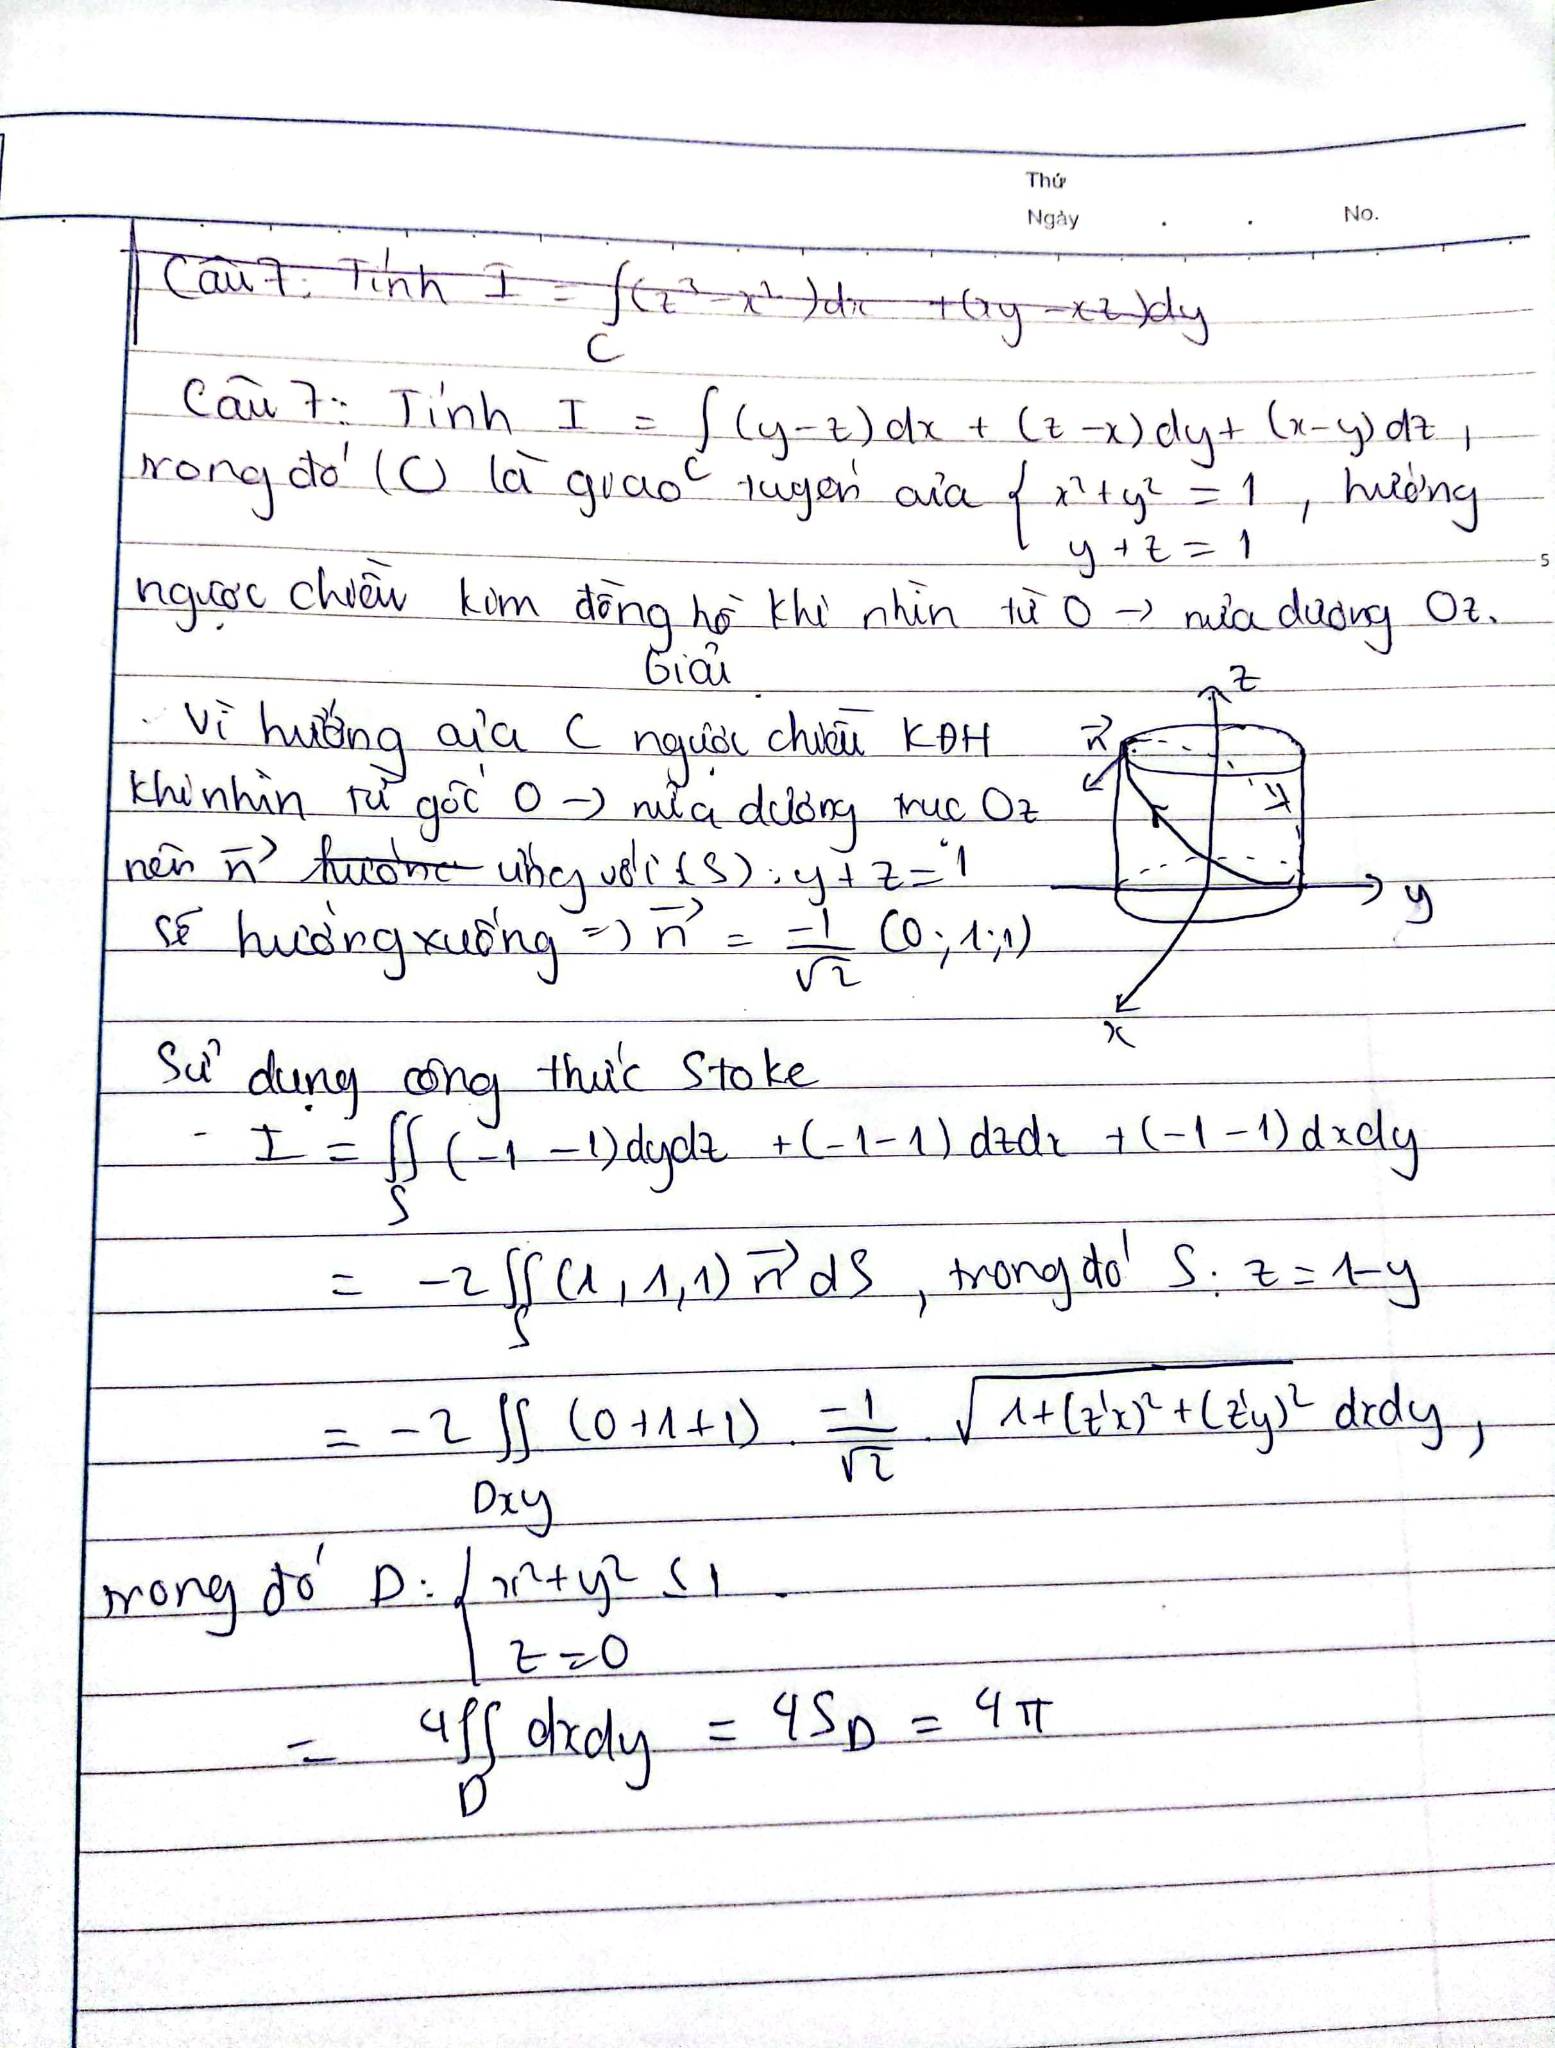 Thứ
Ngày . . No.
Câu 7: Tính I = ∫(z² - x²)dx + (xy - xz)dy
C
Câu 7: Tính I = ∫(y-z)dx + (z-x)dy + (x-y)dz,
C
trong đó (C) là giao tuyến của { x² + y² = 1, hướng
y + z = 1
5
ngược chiều kim đồng hồ khi nhìn từ O → nửa dương Oz.
Giải
Vì hướng của C ngược chiều KĐH
khi nhìn từ gốc O → nửa dương trục Oz
nên n⃗ hướng ứng với (S): y + z = 1
sẽ hướng xuống => n⃗ = -1/√2 (0;1;1)
z
n⃗
y
x
Sử dụng công thức Stoke
- I = ∬ (-1-1)dydz + (-1-1)dzdx + (-1-1)dxdy
S
= -2 ∬ (1,1,1) n⃗ dS, trong đó S: z = 1-y
S
= -2 ∬ (0+1+1) . -1/√2 . √(1+(z'x)²+(z'y)²) dxdy,
Dxy
trong đó D: { x² + y² ≤ 1
z = 0
= 4∬ dxdy = 4S_D = 4π
D